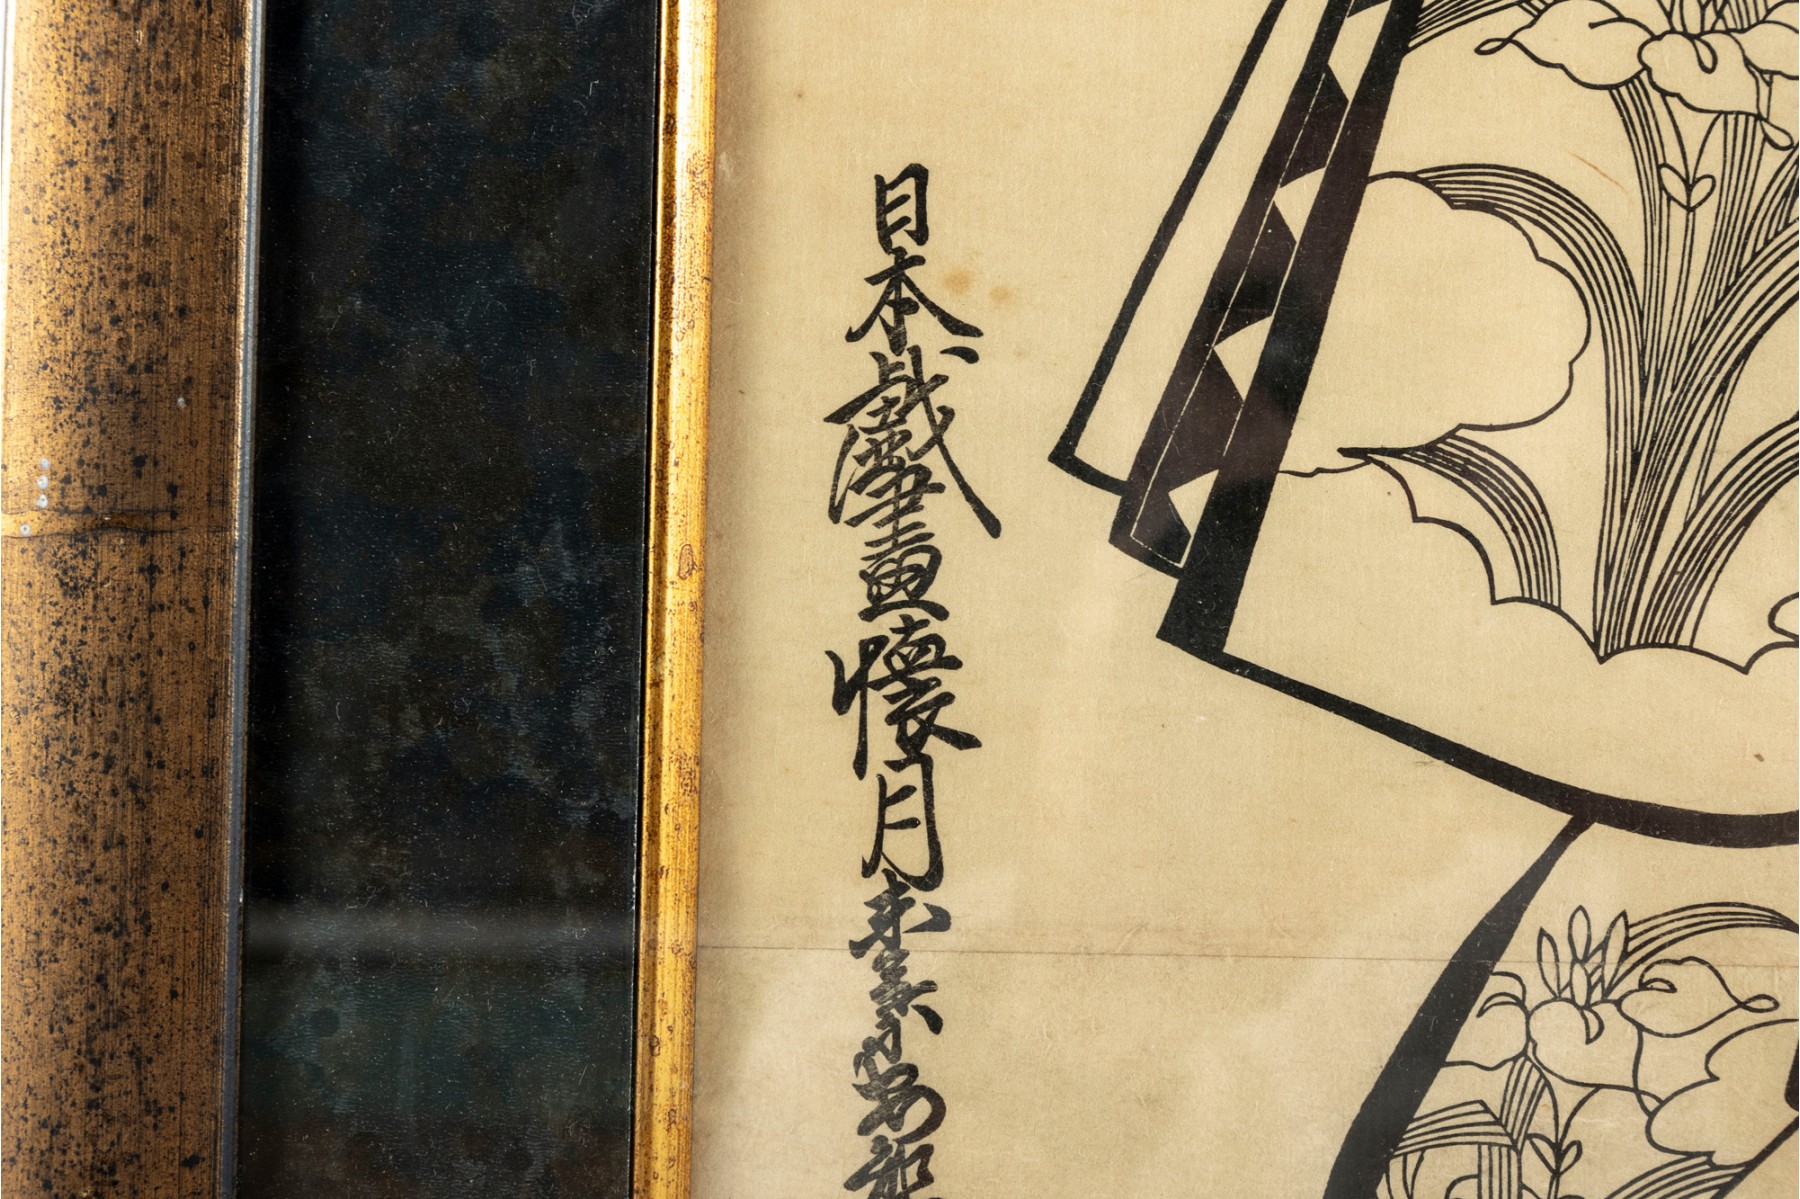 日本戯畫懐月末葉安熊